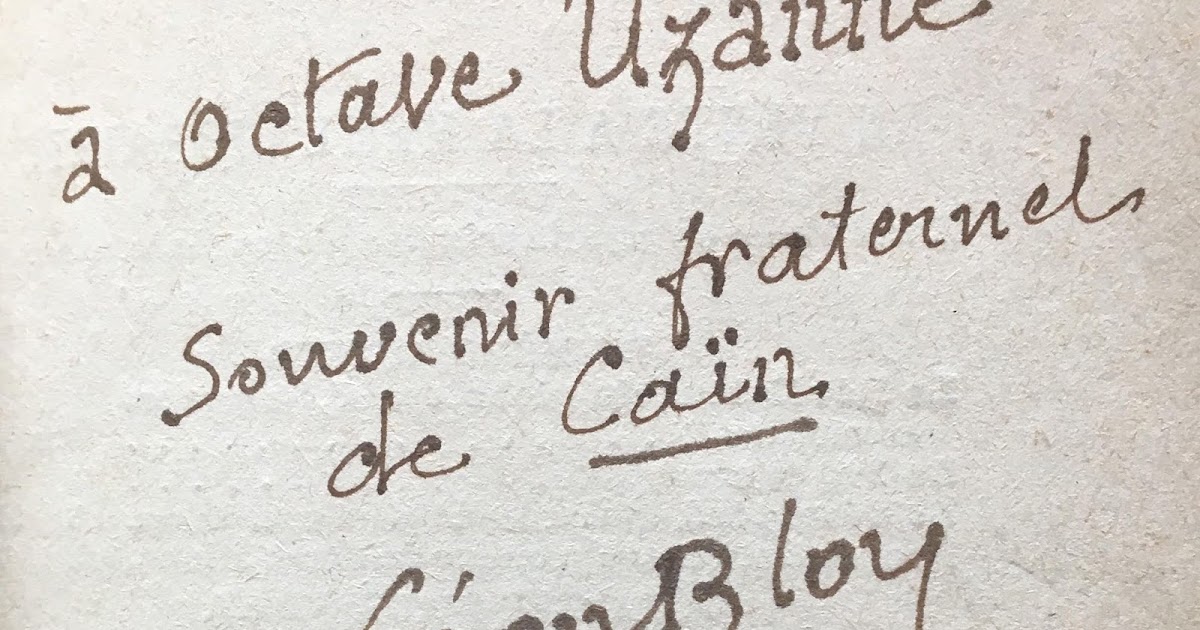 à Octave Uzanne
Souvenir fraternel
de Caïn
Léon Bloy